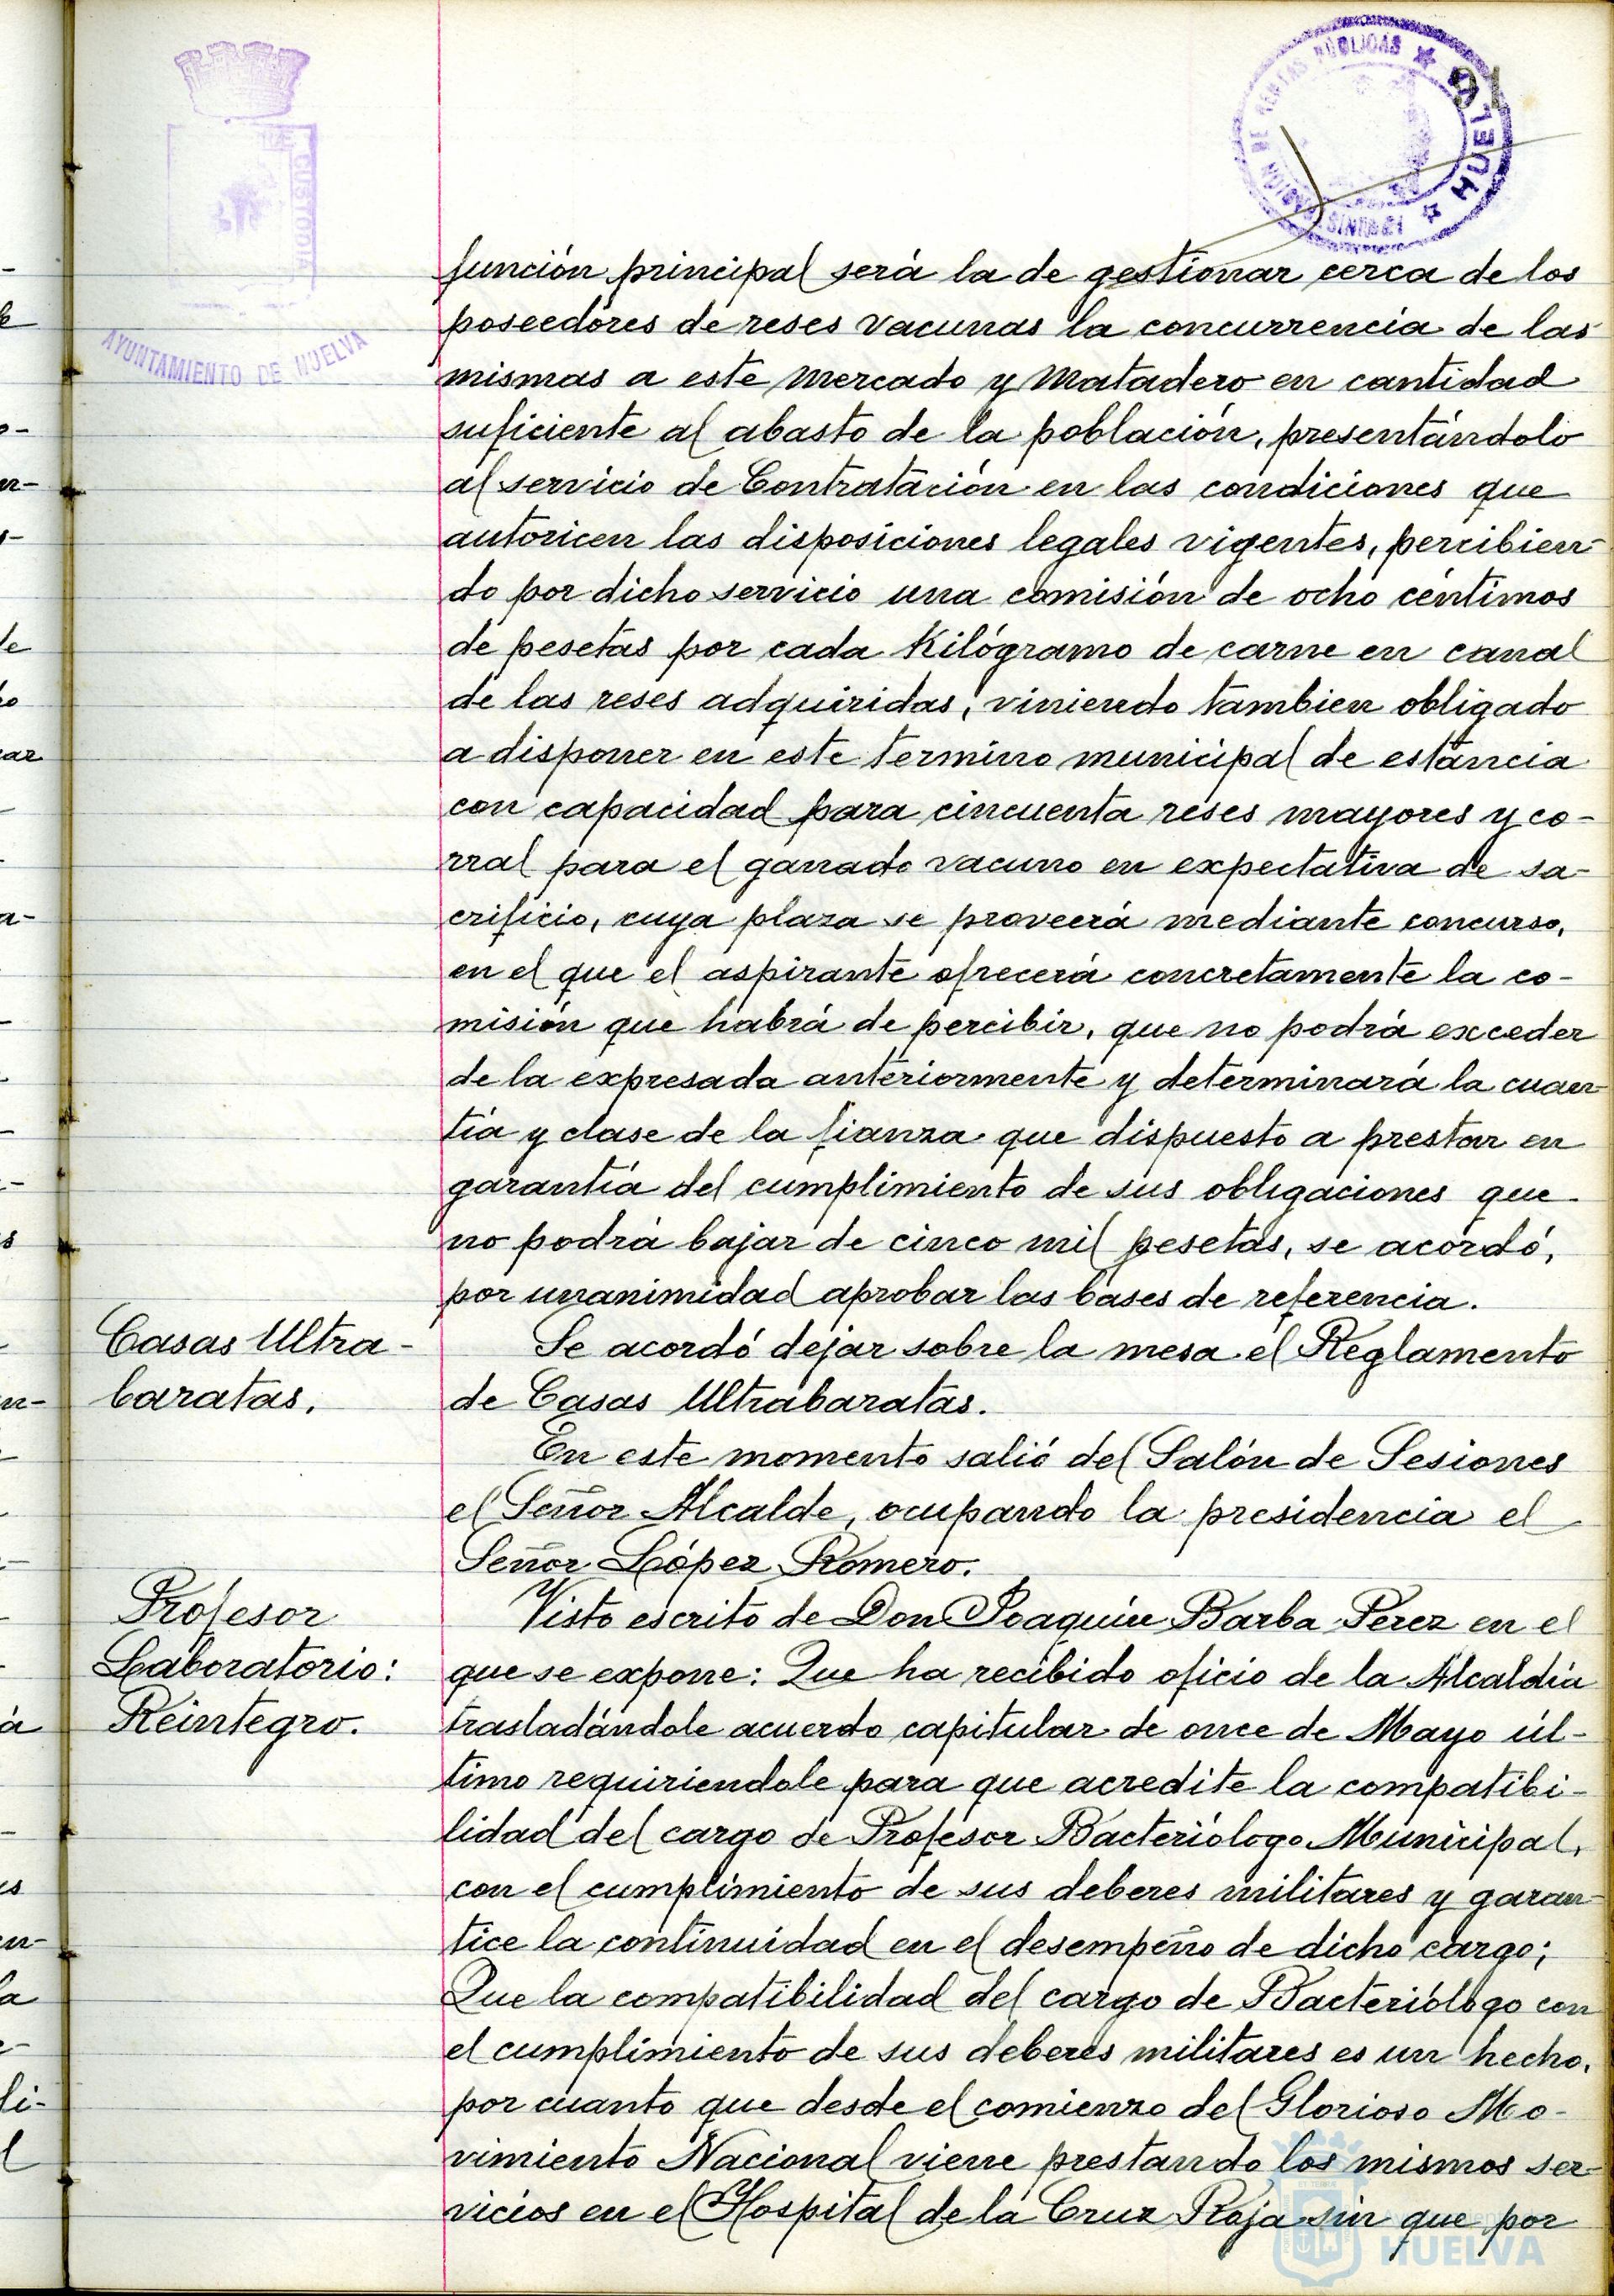 91
DE RENTAS PÚBLICAS ★ HUELVA ★
CUSTODIA
AYUNTAMIENTO DE HUELVA
función principal será la de gestionar cerca de los
poseedores de reses vacunas la concurrencia de las
mismas a este Mercado y Matadero en cantidad
suficiente al abasto de la población, presentándolo
al servicio de Contratación en las condiciones que
autoricen las disposiciones legales vigentes, percibien-
do por dicho servicio una comisión de ocho céntimos
de pesetas por cada Kilógramo de carne en canal
de las reses adquiridas, viniendo tambien obligado
a disponer en este término municipal de estancia
con capacidad para cincuenta reses mayores y co-
rral para el ganado vacuno en expectativa de sa-
crificio, cuya plaza se proveerá mediante concurso,
en el que el aspirante ofrecerá concretamente la co-
misión que habrá de percibir, que no podrá exceder
de la expresada anteriormente y determinará la cuan-
tía y clase de la fianza que dispuesto a prestar en
garantía del cumplimiento de sus obligaciones que
no podrá bajar de cinco mil pesetas, se acordó,
por unanimidad aprobar las bases de referencia.
Casas Ultra-
baratas.
Se acordó dejar sobre la mesa el Reglamento
de Casas Ultrabaratas.
En este momento salió del Salón de Sesiones
el Señor Alcalde, ocupando la presidencia el
Señor López Romero.
Profesor
Laboratorio:
Reintegro.
Visto escrito de Don Joaquín Barba Perez en el
que se expone: Que ha recibido oficio de la Alcaldía
trasladándole acuerdo capitular de once de Mayo úl-
timo requiriendole para que acredite la compatibi-
lidad del cargo de Profesor Bacteriólogo Municipal,
con el cumplimiento de sus deberes militares y garan-
tice la continuidad en el desempeño de dicho cargo;
Que la compatibilidad del cargo de Bacteriólogo con
el cumplimiento de sus deberes militares es un hecho,
por cuanto que desde el comienzo del Glorioso Mo-
vimiento Nacional viene prestando los mismos ser-
vicios en el Hospital de la Cruz Roja sin que por
HUELVA